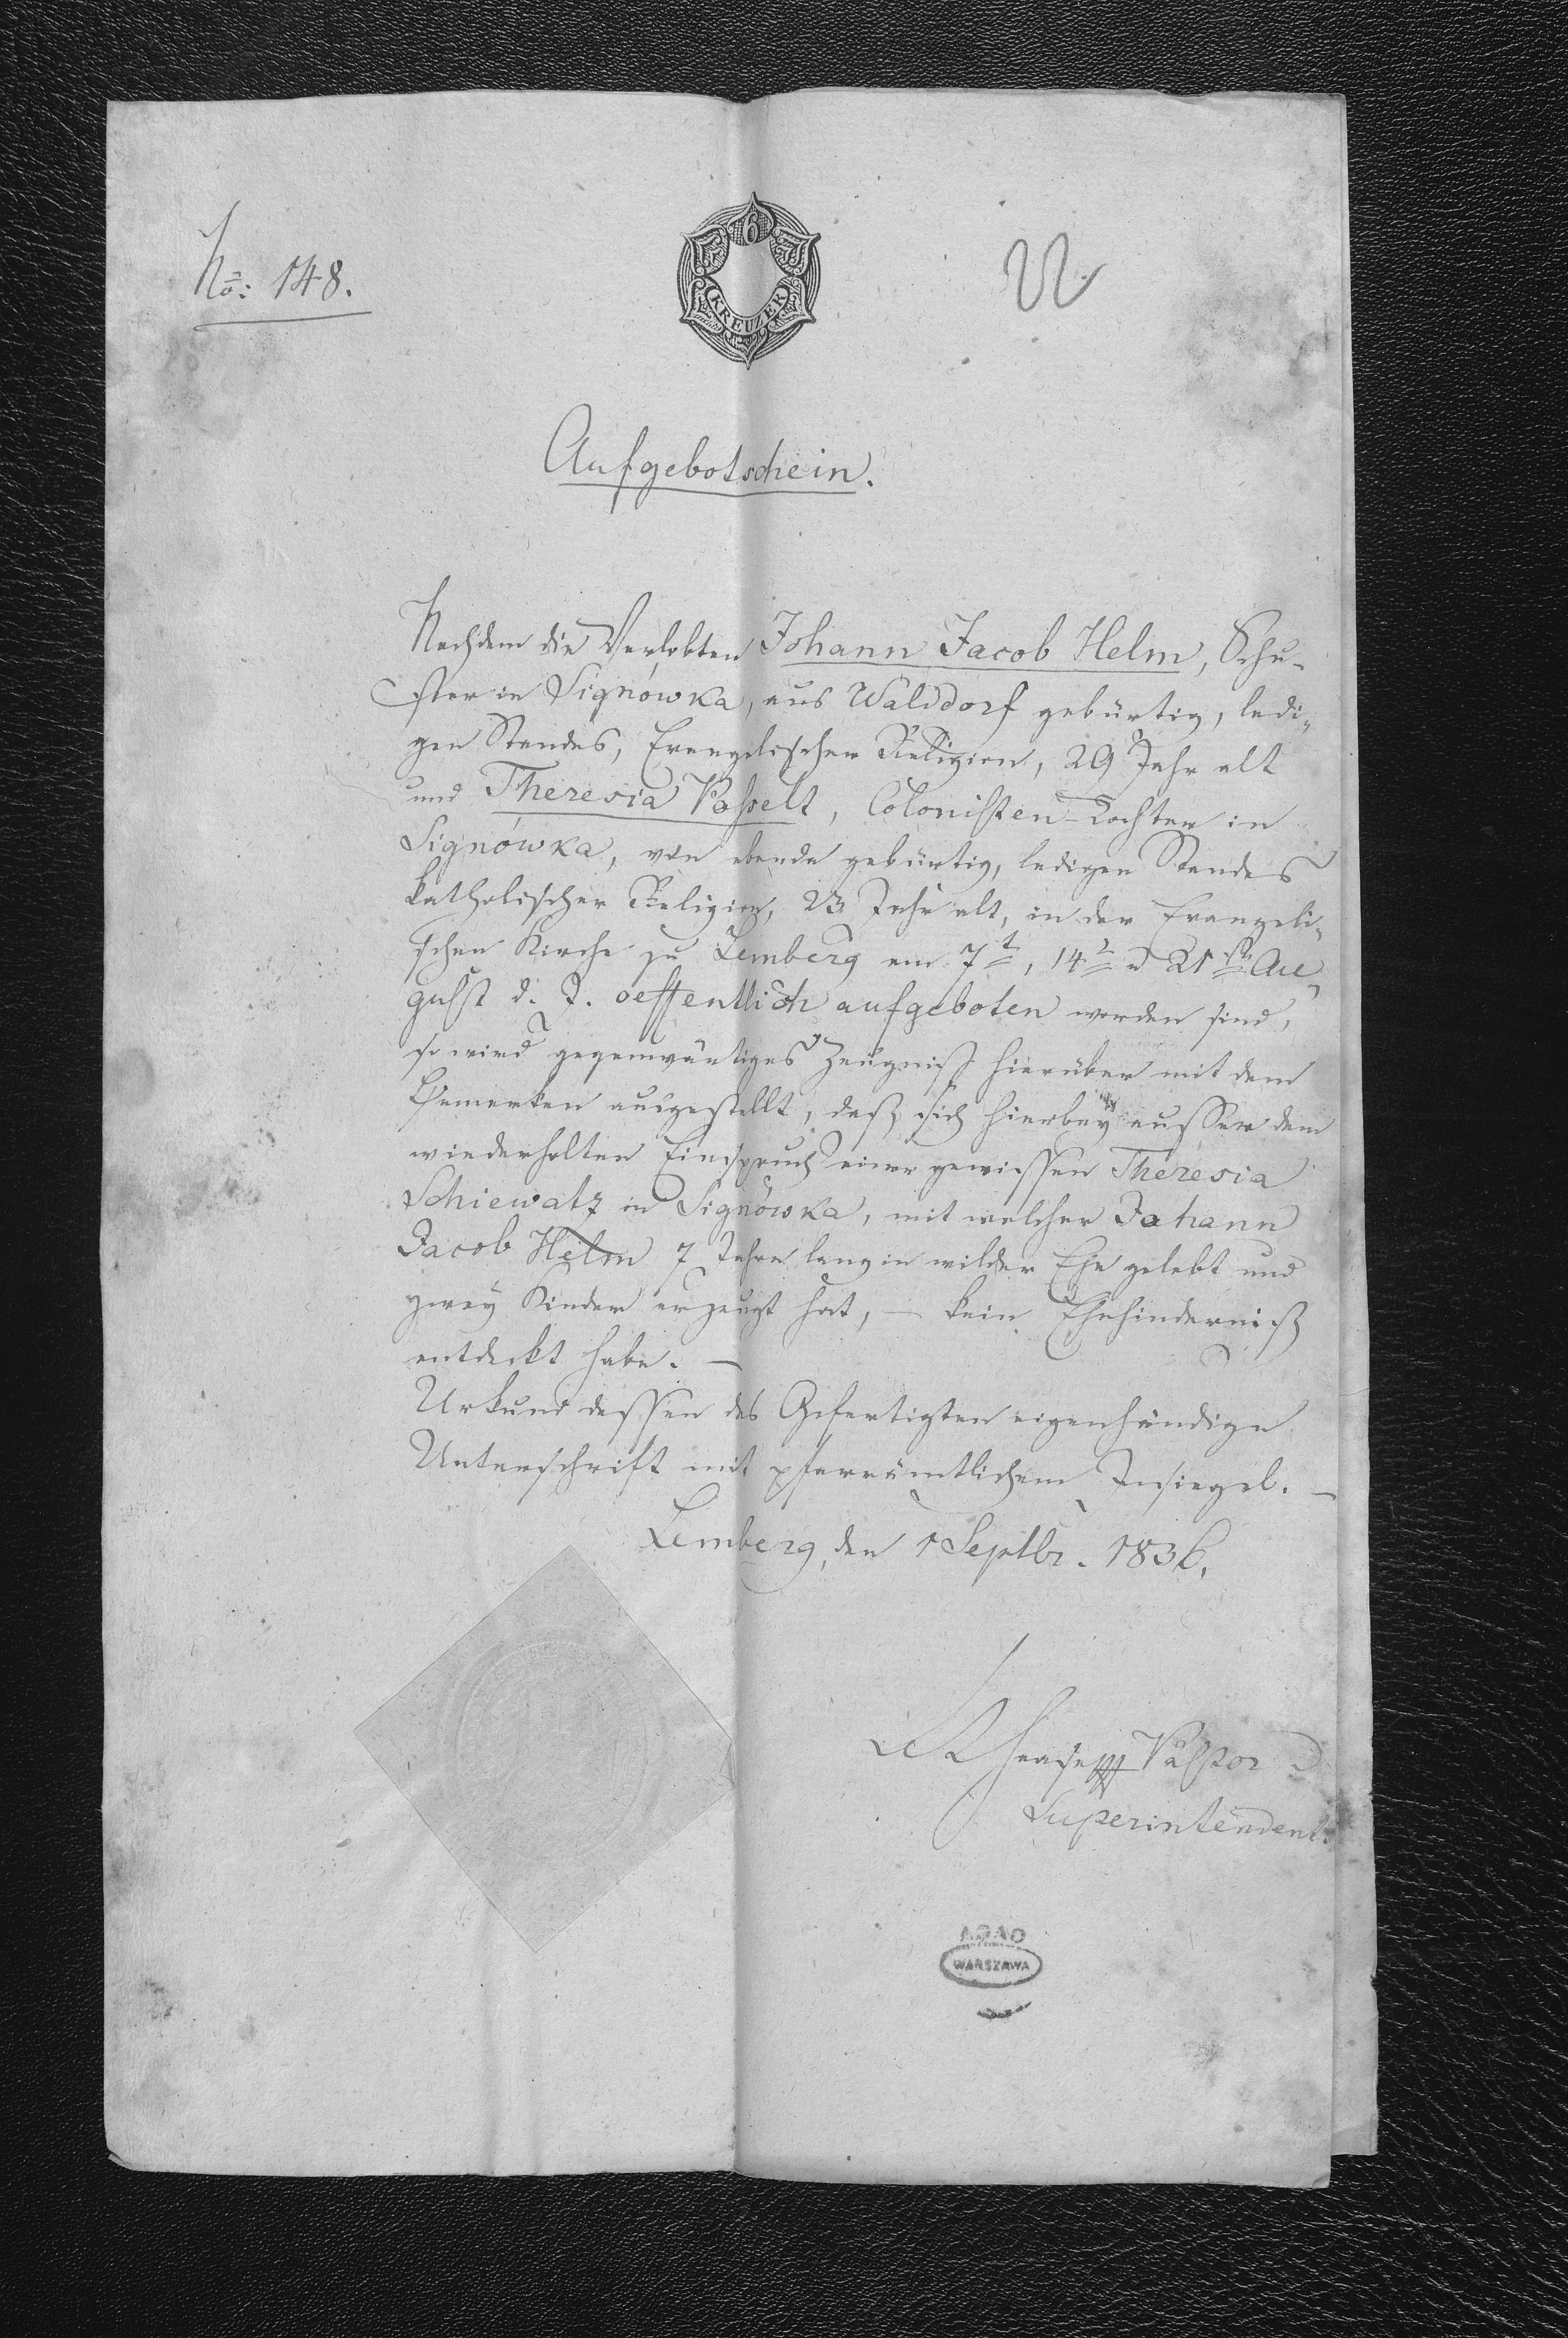 No: 148.
6
KREUZER
22.
Aufgebotschein.
Nachdem die Verlobten Johann Jacob Helm, Schu-
ster in Signówka, aus Walddorf gebürtig, ledi-
gen Standes, Evangelischer Religion, 29 Jahr alt
und Theresia Posselt, Colonisten-Tochter in
Signówka, von ebenda gebürtig, ledigen Standes
katholischer Religion, 23 Jahr alt, in der Evangeli-
schen Kirche zu Lemberg am 7t, 14t u 21st Au-
gust d. J. oeffentlich aufgeboten worden sind,
so wird gegenwärtiges Zeugniß hierüber mit dem
Bemerken ausgestellt, daß sich hierbey ausser dem
wiederholten Einspruch einer gewissen Theresia
Schiewatz in Signówka, mit welcher Johann
Jacob Helm 7 Jahre lang in wilder Ehe gelebt und
zwey Kinder erzeugt hat, – kein Ehehinderniß
entdekt habe. –
Urkund dessen des Gefertigten eigenhändige
Unterschrift mit pfarrämtlichem Insiegel. –
Lemberg, den 1 Septbr. 1836.
Pastor
Superintendent.
AGAD
WARSZAWA